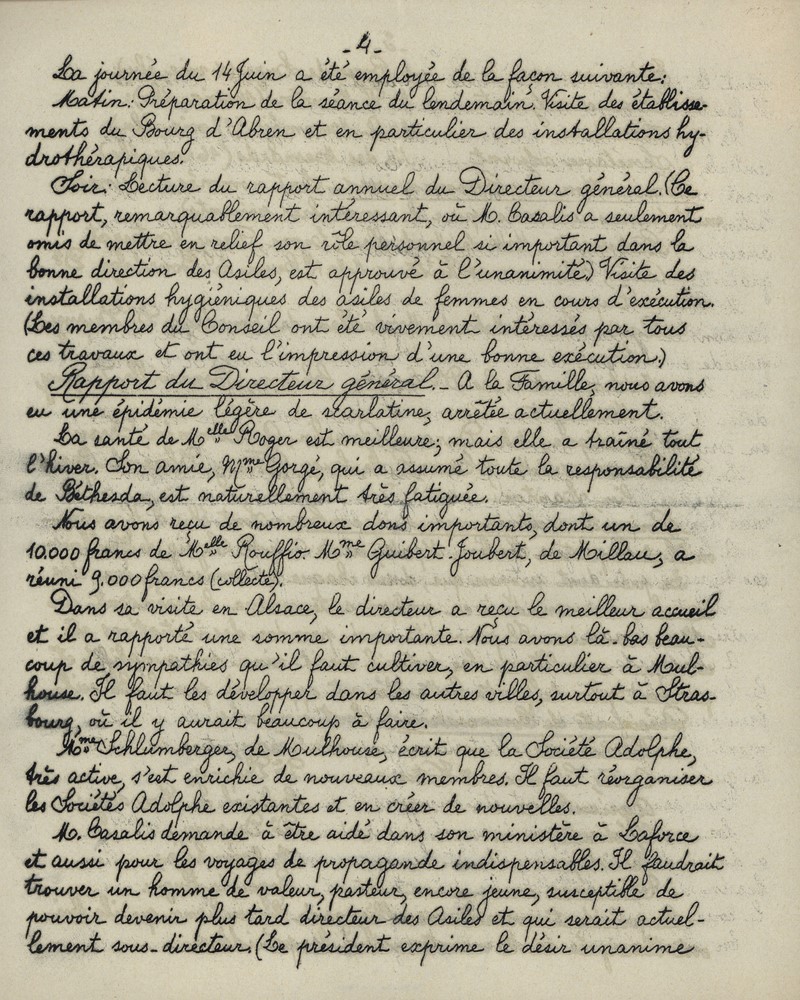 - 4 -
La journée du 14 Juin a été employée de la façon suivante:
Matin: Préparation de la séance du lendemain. Visite des établisse-
ments du Bourg d'Abren et en particulier des installations hy-
drothérapiques.
Soir: Lecture du rapport annuel du Directeur général. (Ce
rapport, remarquablement intéressant, où M. Casalis a seulement
omis de mettre en relief son rôle personnel si important dans la
bonne direction des Asiles, est approuvé à l'unanimité.) Visite des
installations hygiéniques des asiles de femmes en cours d'exécution.
(Les membres du Conseil ont été vivement intéressés par tous
ces travaux et ont eu l'impression d'une bonne exécution.)
Rapport du Directeur général. - A la Famille, nous avons
eu une épidémie légère de scarlatine, arrêtée actuellement.
La santé de Melle Roger est meilleure; mais elle a traîné tout
l'hiver. Son amie, Mme Gorgé, qui a assumé toute la responsabilité
de Béthesda, est naturellement très fatiguée.
Nous avons reçu de nombreux dons importants, dont un de
10.000 francs de Melle Rouffio. Mme Guibert-Joubert, de Millau, a
réuni 9.000 francs (collecte).
Dans sa visite en Alsace, le directeur a reçu le meilleur accueil
et il a rapporté une somme importante. Nous avons là-bas beau-
coup de sympathies qu'il faut cultiver, en particulier à Mul-
house. Il faut les développer dans les autres villes, surtout à Stras-
bourg, où il y aurait beaucoup à faire.
Mme Schlumberger, de Mulhouse, écrit que la Société Adolphe,
très active, s'est enrichie de nouveaux membres. Il faut réorganiser
les Sociétés Adolphe existantes et en créer de nouvelles.
M. Casalis demande à être aidé dans son ministère à Laforce
et aussi pour les voyages de propagande indispensables. Il faudrait
trouver un homme de valeur, pasteur, encore jeune, susceptible de
pouvoir devenir plus tard directeur des Asiles et qui serait actuel-
lement sous-directeur. (Le président exprime le désir unanime